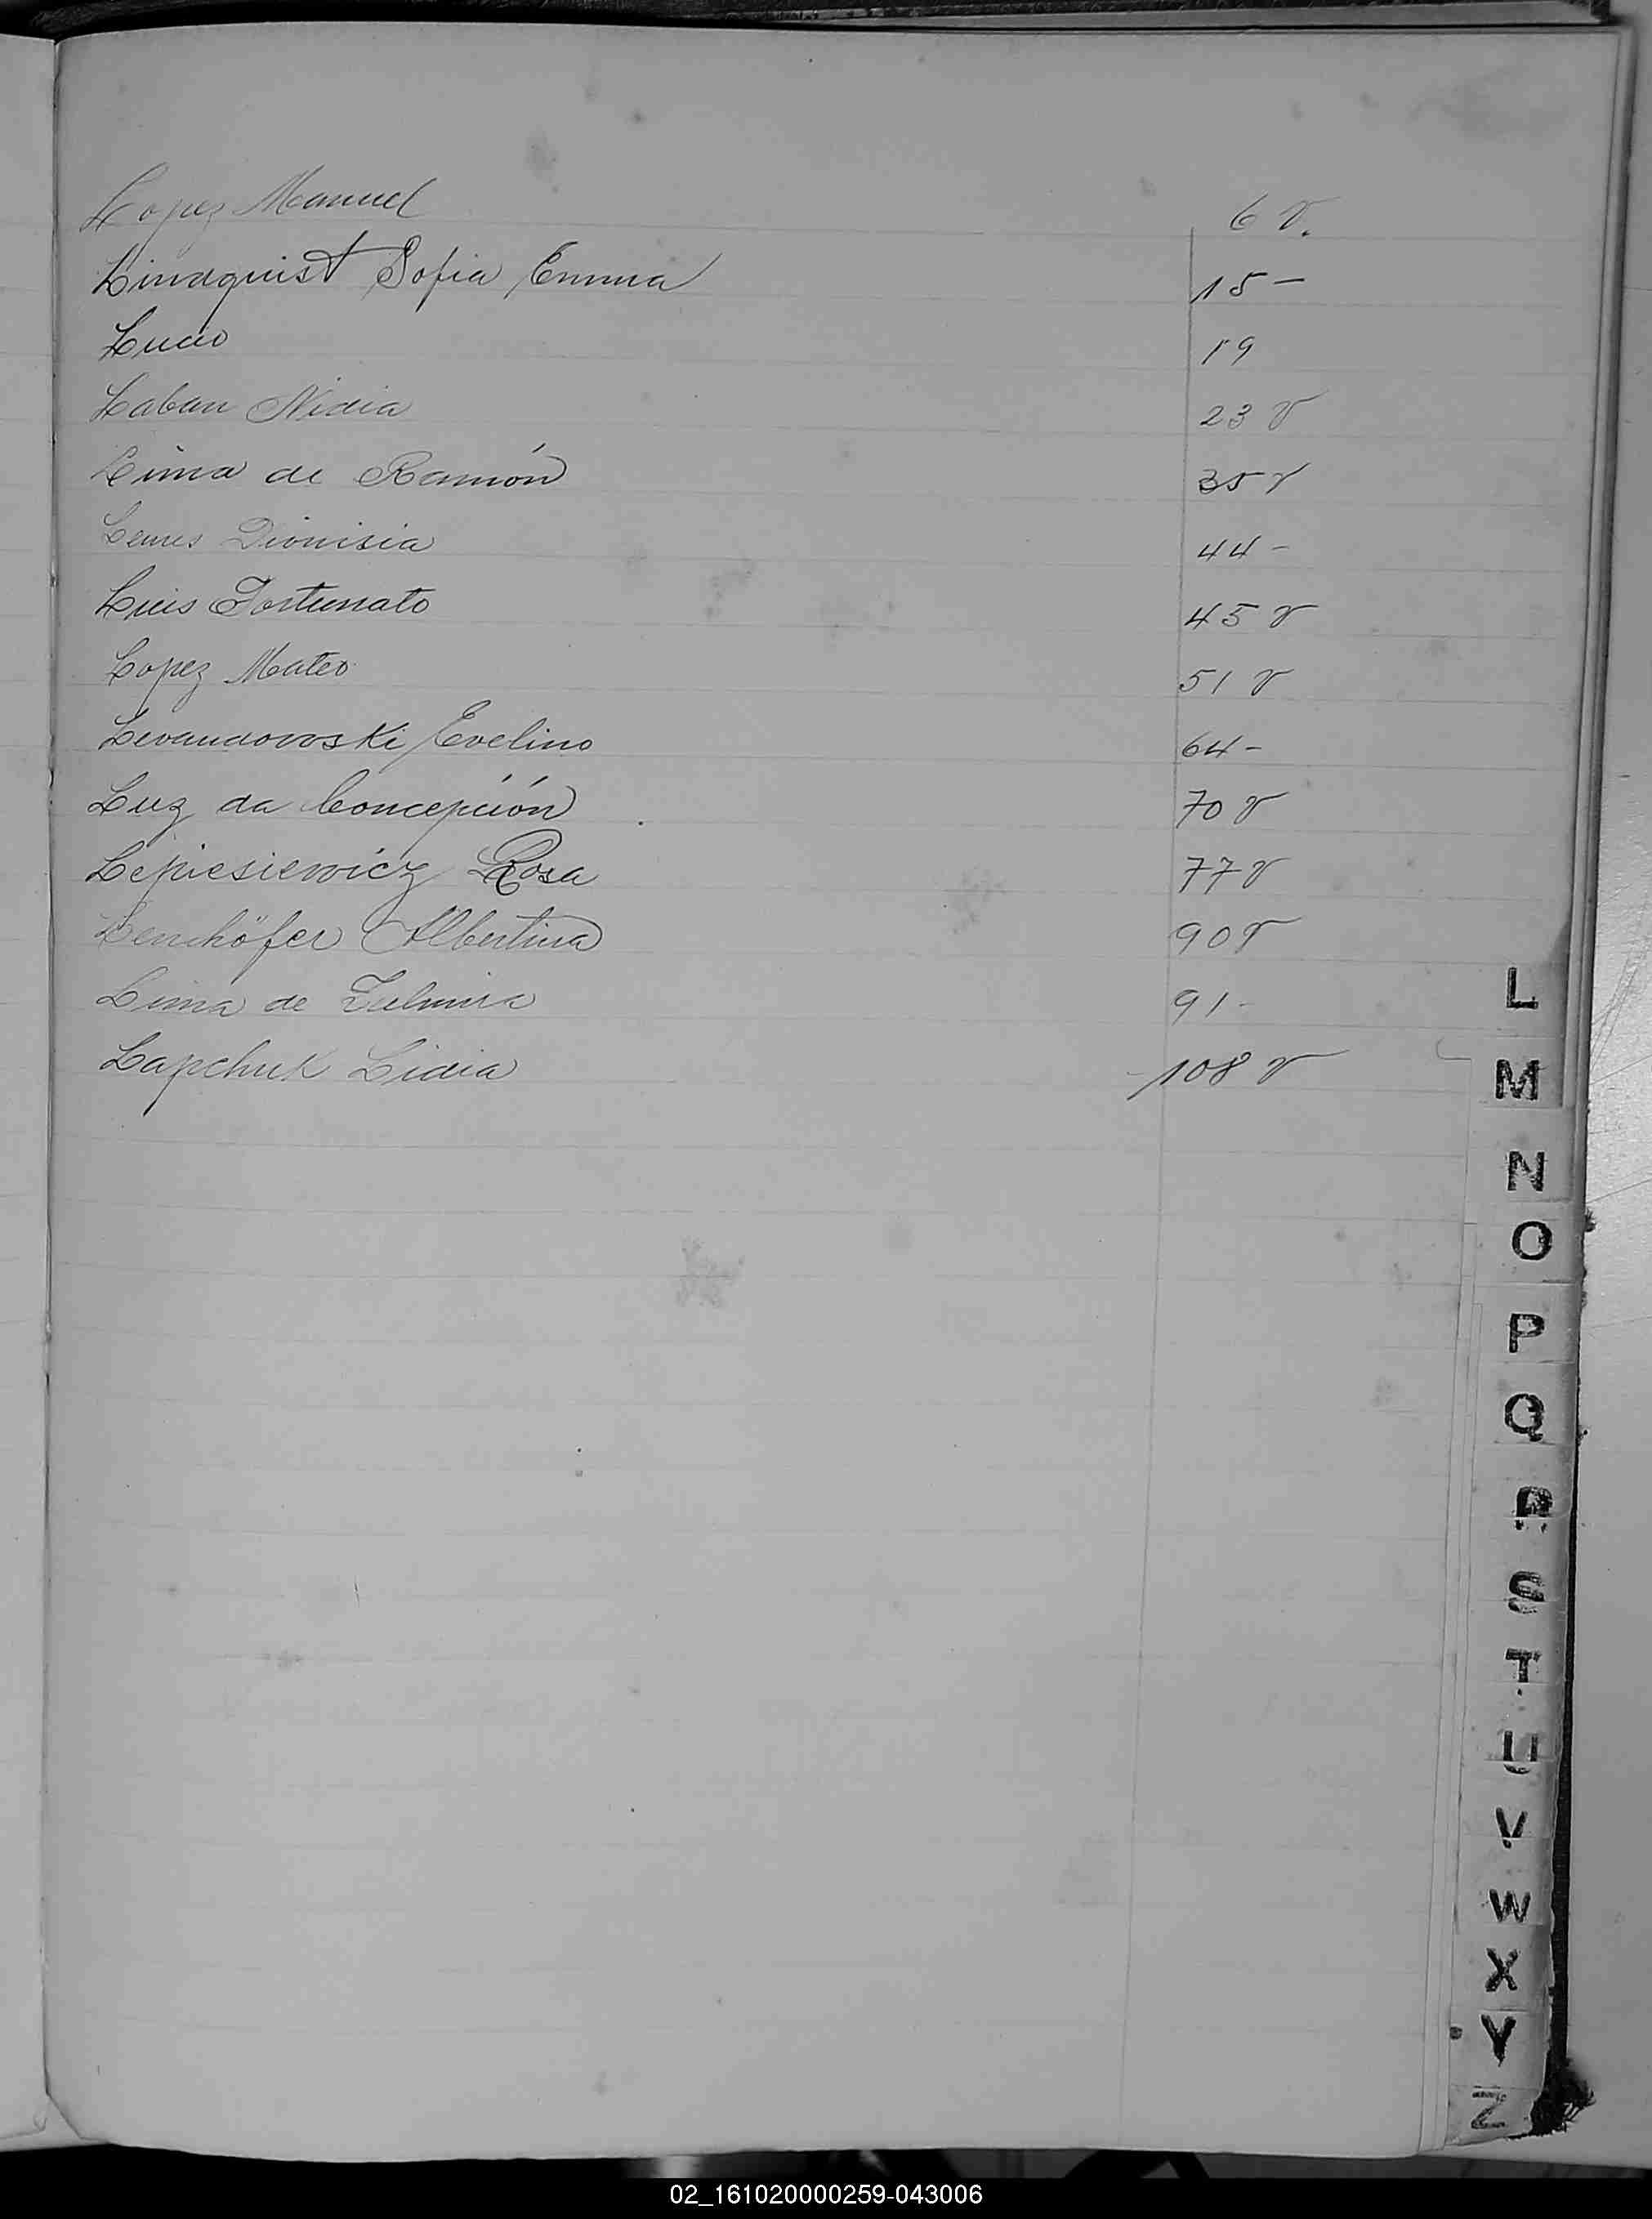 Lopez Manuel 6 v.
Lindquist Sofia Emma 15 -
Lucio 19
Laban Nidia 23 v
Lima de Ramón 35 v
Dionisia 44 -
Luis Fortunato 45 v
Lopez Mateo 51 v
Levandowski Evelino 64 -
Luz da Concepción 70 v
Lepiesiewicz Rosa 77 v
Lenchöfer Albertina 90 v
Lima de 91 -
Lapchuk Lidia 108 v
L
M
N
O
P
Q
R
S
T
U
V
W
X
Y
Z
02_161020000259-043006